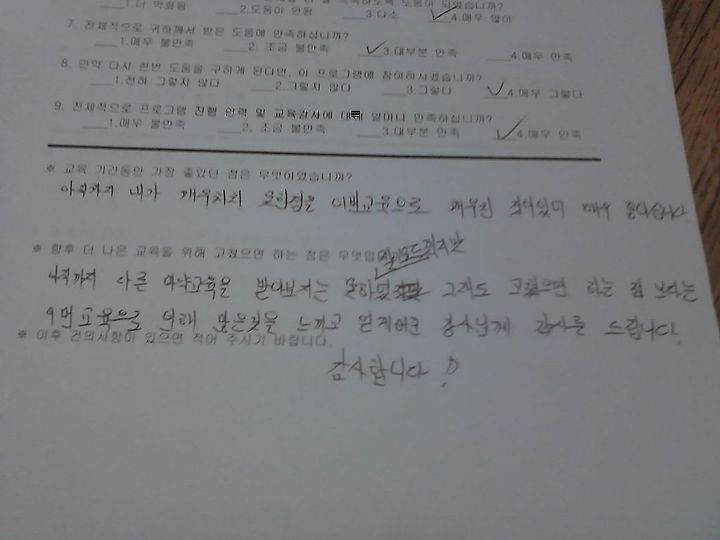 ___1.더 악화됨 ___2.도움이 안됨 ___3.다소 ✓4.매우 많이
7. 전체적으로 귀하께서 받은 도움에 만족하십니까?
___1.매우 불만족 ___2. 조금 불만족 ✓3.대부분 만족 ___4.매우 만족
8. 만약 다시 한번 도움을 구하게 된다면, 이 프로그램에 참여하시겠습니까?
___1.전혀 그렇지 않다 ___2.그렇지 않다 ___3.그렇다 ✓4.매우 그렇다
9. 전체적으로 프로그램 진행 인력 및 교육강사에 대해 얼마나 만족하십니까?
___1.매우 불만족 ___2. 조금 불만족 ___3.대부분 만족 ✓4.매우 만족
※ 교육 기간동안 가장 좋았던 점은 무엇이었습니까?
아직까지 내가 깨우치지 못한점을 이번교육으로 매우 좋았습니다
※ 향후 더 나은 교육을 위해 고쳤으면 하는 점은 무엇입
아직까지 다른 마약교육을 받아보지는 못하 그래도 고쳤으면 하는 점 보다는
이번교육으로 많은것을 느끼고 강사님께 감사를 드립니다.
※ 이후 건의사항이 있으면 적어 주시기 바랍니다.
감사합니다 !